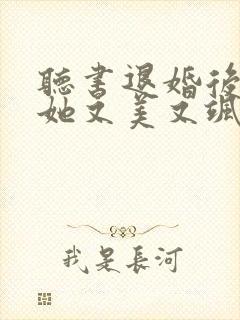 聽書退婚後
她又美又颯
我是長河